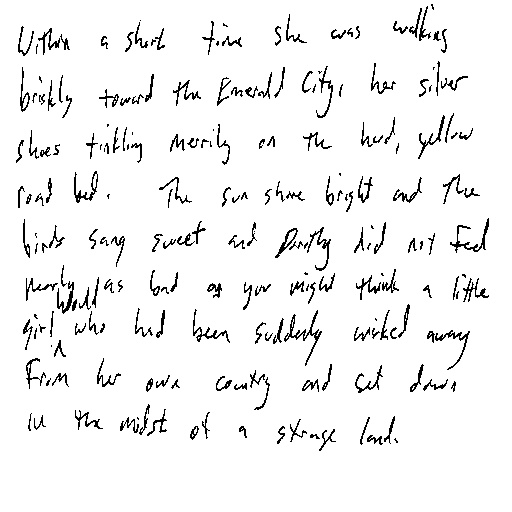 Within a short time she was walking
briskly toward the Emerald City, her silver
shoes tinkling merrily on the hard, yellow
road bed. The sun shone bright and the
birds sang sweet and Dorothy did not feel
nearly as bad as you might think a little
girl would who had been suddenly whisked away
from her own country and set down
in the midst of a strange land.